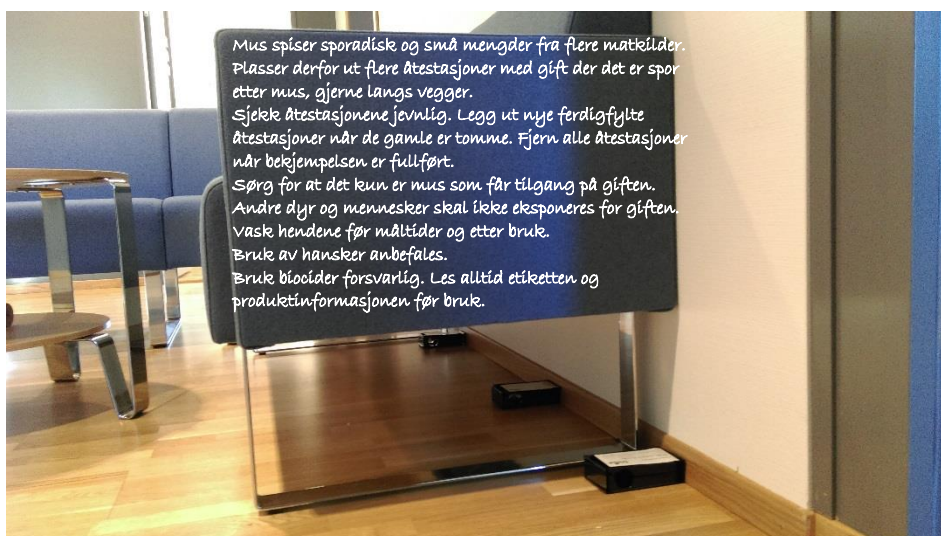 Mus spiser sporadisk og små mengder fra flere matkilder.
Plasser derfor ut flere åtestasjoner med gift der det er spor
etter mus, gjerne langs vegger.
Sjekk åtestasjonene jevnlig. Legg ut nye ferdigfylte
åtestasjoner når de gamle er tomme. Fjern alle åtestasjoner
når bekjempelsen er fullført.
Sørg for at det kun er mus som får tilgang på giften.
Andre dyr og mennesker skal ikke eksponeres for giften.
Vask hendene før måltider og etter bruk.
Bruk av hansker anbefales.
Bruk biocider forsvarlig. Les alltid etiketten og
produktinformasjonen før bruk.